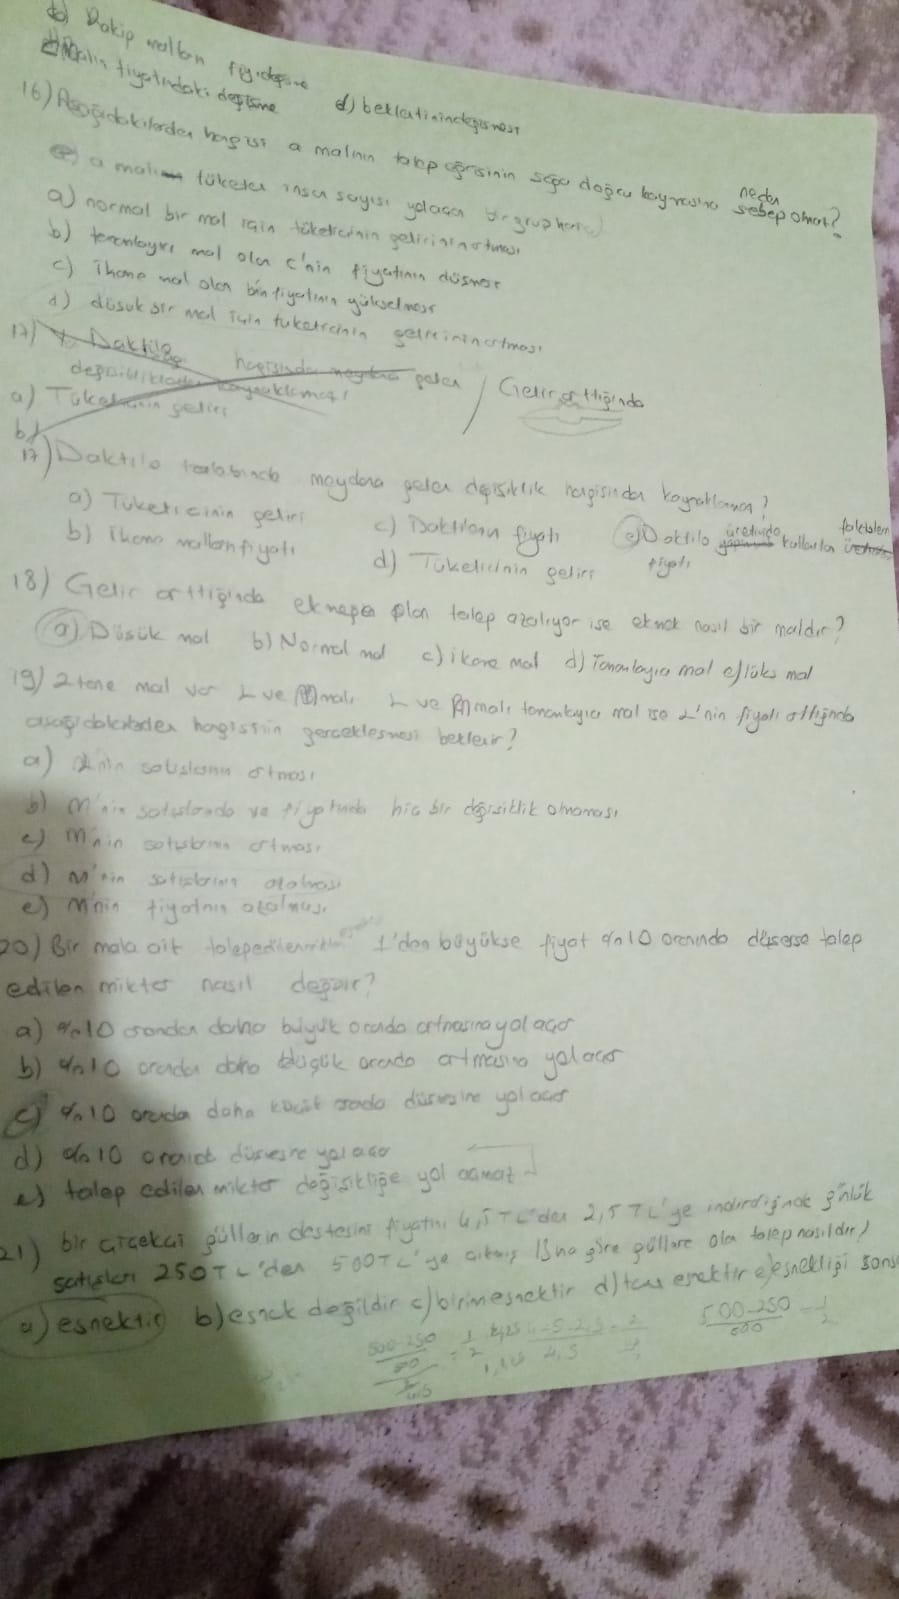 b) Rakip malların fiy.değişme
malın fiyatındaki değişme d) beklentinindeğişmesi
16) Aşağıdakilerden hangisi a malının talep eğrisinin sağa doğru kaymasına neden sebep olmaz?
e) a malı tüketen insan sayısı yolaçan bir grup
a) normal bir mal için tüketicinin gelirinin artması
b) tamamlayıcı mal olan c'nin fiyatının düşmesi
c) İkame mal olan b'nin fiyatının yükselmesi
d) düşük bir mal için tüketicinin gelirinin artması
17) Daktilo hangisinden meydana gelen / Gelir arttığında
değişiklikler kaynaklanmaz!
a) Tüketicinin geliri
b)
17) Daktilo talebinde meydana gelen değişiklik hangisinden kaynaklanmaz?
a) Tüketicinin geliri c) Daktilonun fiyatı e) Daktilo üretiminde kullanılan faktörlerin
b) İkame malların fiyatı d) Tüketicinin geliri fiyatı
18) Gelir arttığında ekmeğe olan talep azalıyor ise ekmek nasıl bir maldır?
a) Düşük mal b) Normal mal c) ikame mal d) Tamamlayıcı mal e) lüks mal
19) 2 tane mal var L ve M malı L ve M malı tamamlayıcı mal ise L'nin fiyatı arttığında
aşağıdakilerden hangisinin gerçekleşmesi beklenir?
a) L'nin satışlarının artması
b) M'nin satışlarında ve fiyatında hiç bir değişiklik olmaması
c) M'nin satışlarının artması
d) M'nin satışlarının azalması
e) M'nin fiyatının azalması
20) Bir mala ait talep 1'den büyükse fiyat %10 oranında düşerse talep
edilen miktar nasıl değişir?
a) %10 orandan daha büyük oranda artmasına yol açar
b) %10 orandan daha küçük oranda artmasına yol açar
c) %10 orandan daha küçük oranda düşmesine yol açar
d) %10 oranda düşmesine yol açar
e) talep edilen miktar değişikliğe yol açmaz
21) bir çiçekçi güllerin destesini fiyatını 4,5 TL'den 2,5 TL'ye indirdiğinde günlük
satışları 250TL'den 500TL'ye çıkmış Buna göre güllere olan talep nasıldır?
a) esnektir b) esnek değildir c) birimesnektir d) tam esnektir e) esnekliği sons
500-250 1/2 4-5-2,5 2 500-250 1/2
4,5 500